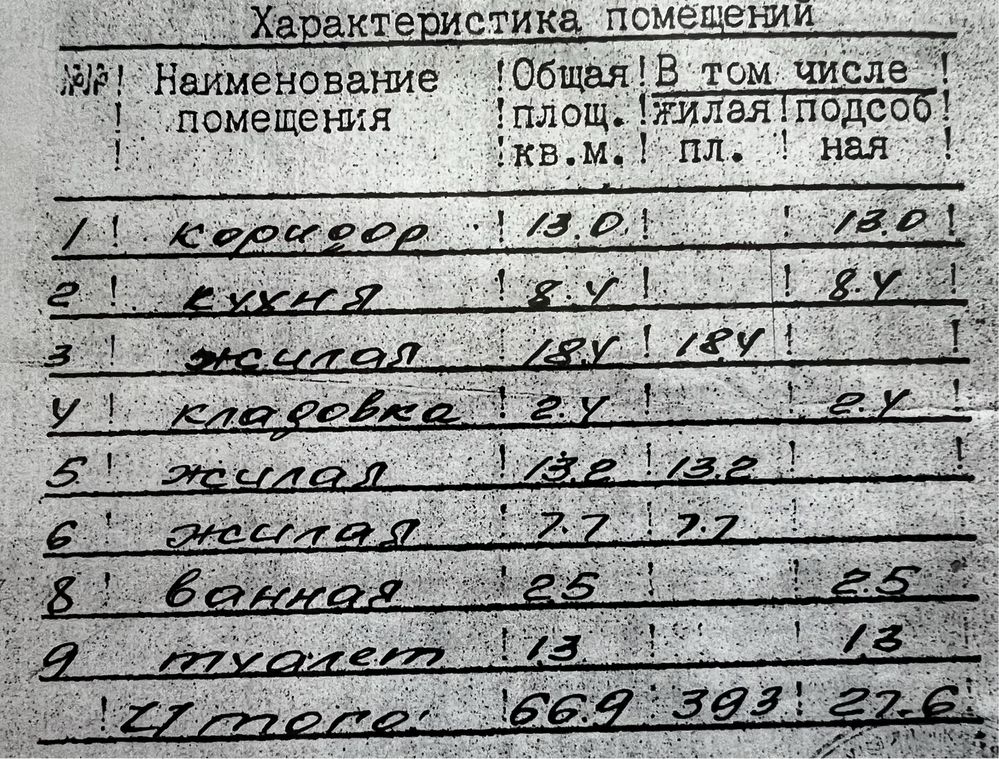 Характеристика помещений
№№ ! Наименование ! Общая ! В том числе !
! помещения ! площ. ! жилая ! подсоб !
! ! кв.м. ! пл. ! ная !
1 ! коридор ! 13.0 ! ! 13.0 !
2 ! кухня ! 8.4 ! ! 8.4 !
3 ! жилая ! 18.4 ! 18.4 ! !
4 ! кладовка ! 2.4 ! ! 2.4 !
5 ! жилая ! 13.2 ! 13.2 ! !
6 ! жилая ! 7.7 ! 7.7 !
8 ! ванная ! 2.5 ! ! 2.5 !
9 туалет ! 1.3 ! ! 1.3 !
! Итого: ! 66.9 ! 39.3 ! 27.6 !